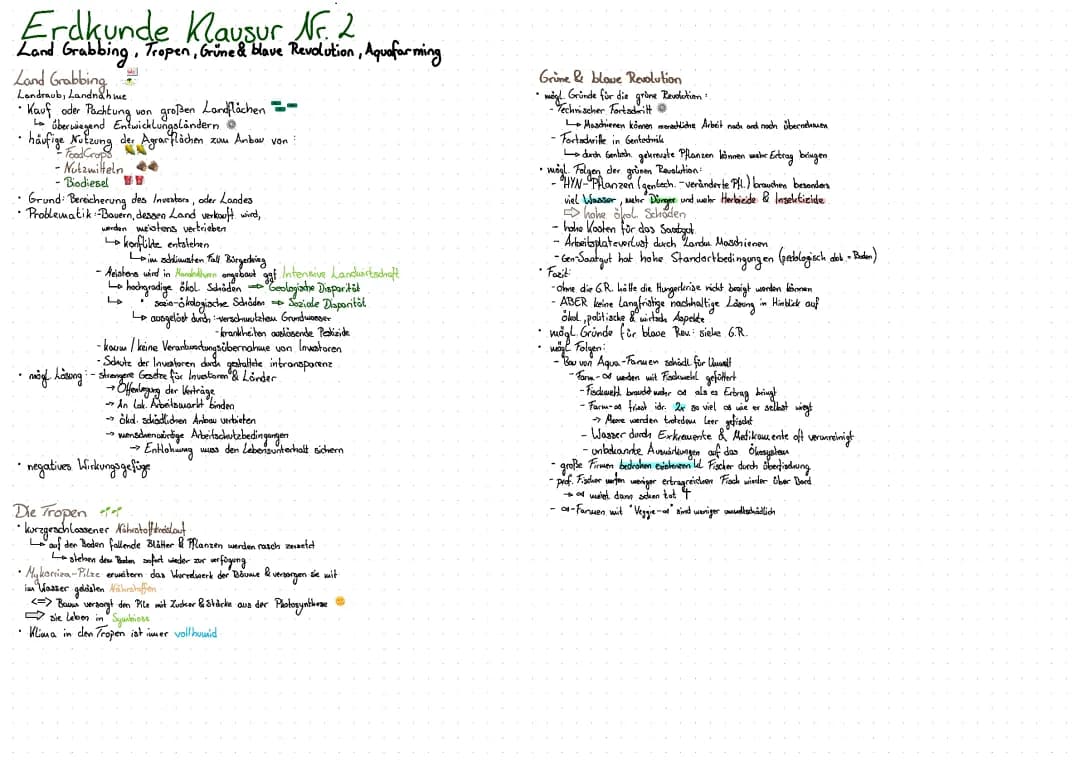 Erdkunde Klausur Nr. 2
Land Grabbing, Tropen, Grüne & blaue Revolution, Aquafarming
Land Grabbing
Landraub, Landnahme
• Kauf oder Pachtung von großen Landflächen
↳ überwiegend Entwicklungsländern
• häufige Nutzung der Agrarflächen zum Anbau von :
- FoodCrops
- Nutzmitteln
- Biodiesel
• Grund: Bereicherung des Investors, oder Landes
• Problematik: - Bauern, dessen Land verkauft wird,
werden meistens vertrieben
↳ konflikte entstehen
↳ im schlimmsten Fall Bürgerkrieg
- Meistens wird in Monokulturen angebaut ggf Intensive Landwirtschaft
↳ hochgradige ökol. Schäden ⇒ Geologische Disparität
↳ • sozio-ökologische Schäden ⇒ Soziale Disparität
↳ ausgelöst durch: - verschmutztem Grundwasser
- krankheiten auslösende Pestizide
- kaum / keine Verantwortungsübernahme von Investoren
- Schutz der Investoren durch gestaltete intransparenz
• mögl. Lösung: - strengere Gesetze für Investoren & Länder
→ Offenlegung der Verträge
→ An lok. Arbeitsmarkt binden
→ ökol. schädlichen Anbau verbieten
→ menschenwürtige Arbeitschutzbedingungen
→ Entlohnung muss den Lebensunterhalt sichern
• negatives Wirkungsgefüge
Die Tropen
• kurzgeschlossener Nährstoffkreislauf
↳ auf den Boden fallende Blätter & Pflanzen werden rasch zersetzt
↳ stehen dem Boden sofort wieder zur verfügung
• Mykorriza-Pilze erweitern das Wurzelwerk der Bäume & versorgen sie mit
im Wasser gelösten Nährstoffen
<=> Baum versorgt den Pilz mit Zucker & Stärke aus der Photosynthese
⇒ sie leben in Symbiose
• Klima in den Tropen ist immer vollhumid
Grüne & blaue Revolution
• mögl Gründe für die grüne Revolution :
- Technischer Fortschritt
↳ Maschienen können menschliche Arbeit nach und nach übernehmen
- Fortschritte in Gentechnik
↳ durch Gentech. gekreuzte Pflanzen können mehr Ertrag bringen
• mögl. Folgen der grünen Revolution:
- HYN-Pflanzen (gentech. -veränderte Pfl.) brauchen besonders
viel Wasser, mehr Dünger und mehr Herbizide & Insektizide
⇒ hohe ökol. Schäden
- hohe Kosten für das Saatgut
- Arbeitsplatzverlust durch Landw. Maschienen
- Gen-Saatgut hat hohe Standortbedingungen
• Fazit:
- ohne die G.R. hätte die Hungerkrise nicht besiegt werden können
- ABER keine Langfristige nachhaltige Lösung in Hinblick auf
ökol., politische & wirtsch. Aspekte
• mögl. Gründe für blaue Rev.: siehe G.R.
• mögl. Folgen:
- Bau von Aqua-Farmen schädl. für Umwelt
- Farm- werden mit Fischmehl gefüttert
- Fischmehl braucht mehr als es Ertrag bringt
- Farm- frisst idr. 2x so viel as wie er selbst wiegt
→ Meere werden trotzdem leer gefischt
- Wasser durch Exkremente & Medikamente oft verunreinigt
- unbekannte Auswirkungen auf das Ökosystem
- große Firmen bedrohen existenzen lol. Fischer durch überfischung
- prof. Fischer werfen weniger ertragreichen Fisch wieder über Bord
→ meist dann schon tot
- Farmen mit "Veggie-" sind weniger umweltschädlich